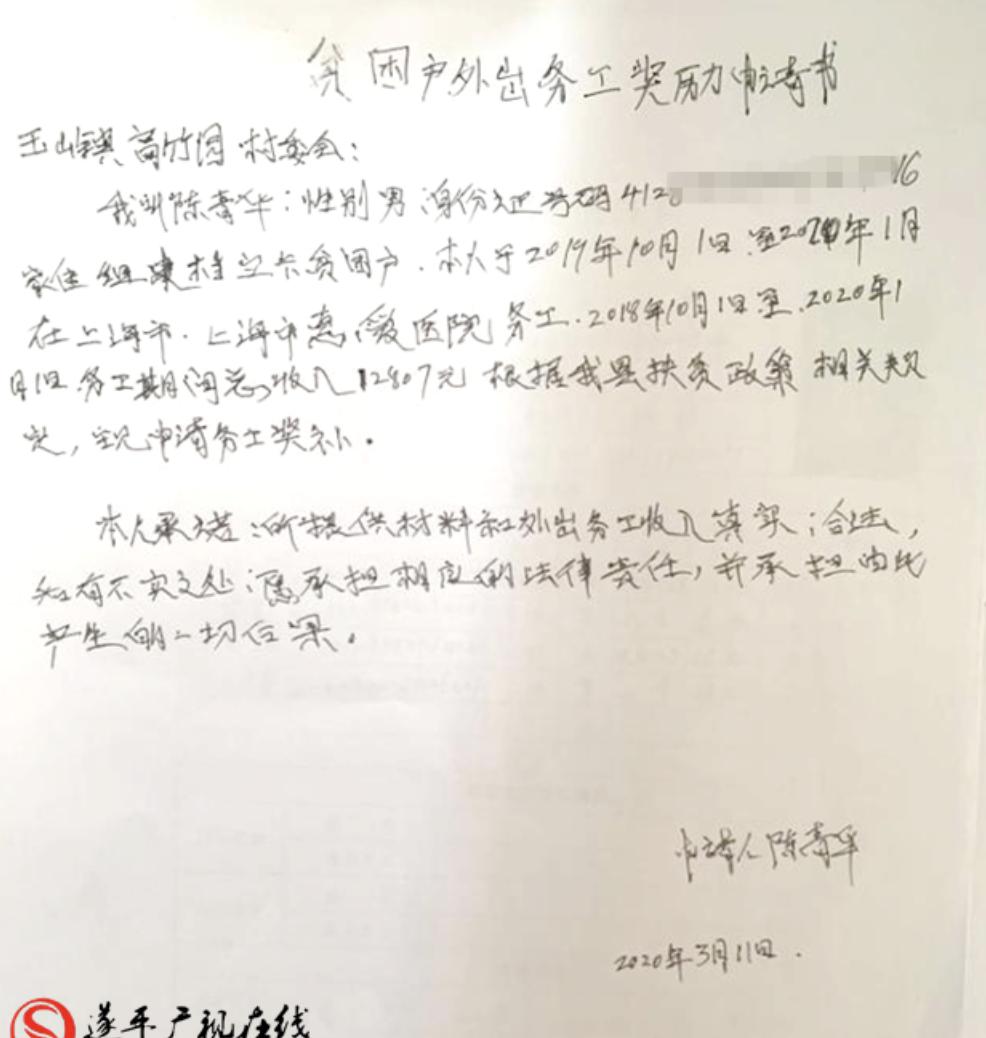 贫困户外出务工奖励申请书
玉山镇高竹园村委会：
我叫陈青华：性别男 身份证号码4128 16
家住组建档立卡贫困户．本人于2019年10月1日至2020年1月
在上海市．上海市惠爱医院务工．2018年10月1日至．2020年1
月1日．务工期间总收入12807元 根据我县扶贫政策相关规
定，现申请务工奖补．
本人承诺：所提供材料和外出务工收入真实；合法，
如有不实之处；愿承担相应的法律责任，并承担由此
产生的一切后果．
申请人陈青华
2020年3月11日．
遂平广视在线